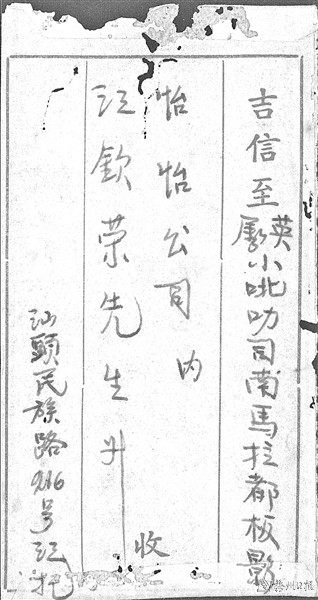 吉信至英属小吡叻司南馬拉都板影
怡怡公司内
江欽荣先生升 收
汕頭民族路216号江托
潮州日报